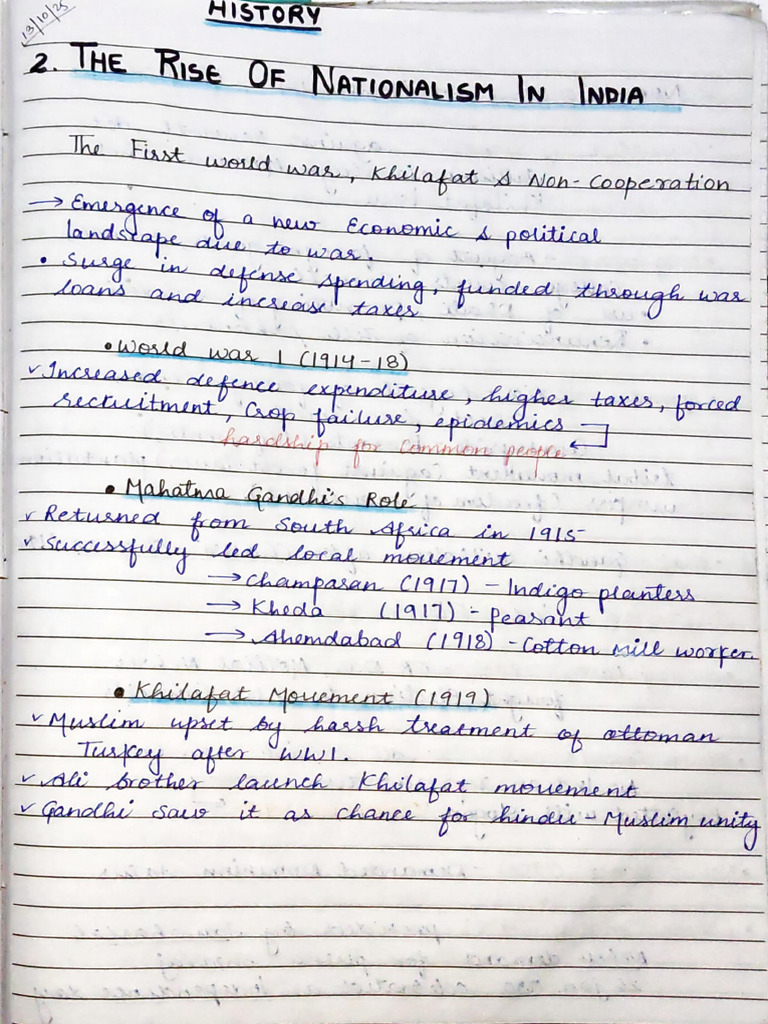 13/10/25
HISTORY
2. THE RISE OF NATIONALISM IN INDIA
The First world war, Khilafat & Non-Cooperation
→ Emergence of a new Economic & political
landscape due to war.
• Surge in defense spending, funded through war
loans and increase taxes
• World war 1 (1914-18)
✓ Increased defence expenditure, higher taxes, forced
recruitment, Crop failure, epidemics
hardship for common people
• Mahatma Gandhi's Role
✓ Returned from South Africa in 1915
✓ Successfully led local movement
→ Champaran (1917) - Indigo planters
→ Kheda (1917) - peasant
→ Ahemdabad (1918) - Cotton mill worker.
• Khilafat Movement (1919)
✓ Muslim upset by harsh treatment of ottoman
Turkey after WW1.
✓ Ali brother launch Khilafat movement
✓ Gandhi saw it as chance for hindu-Muslim unity